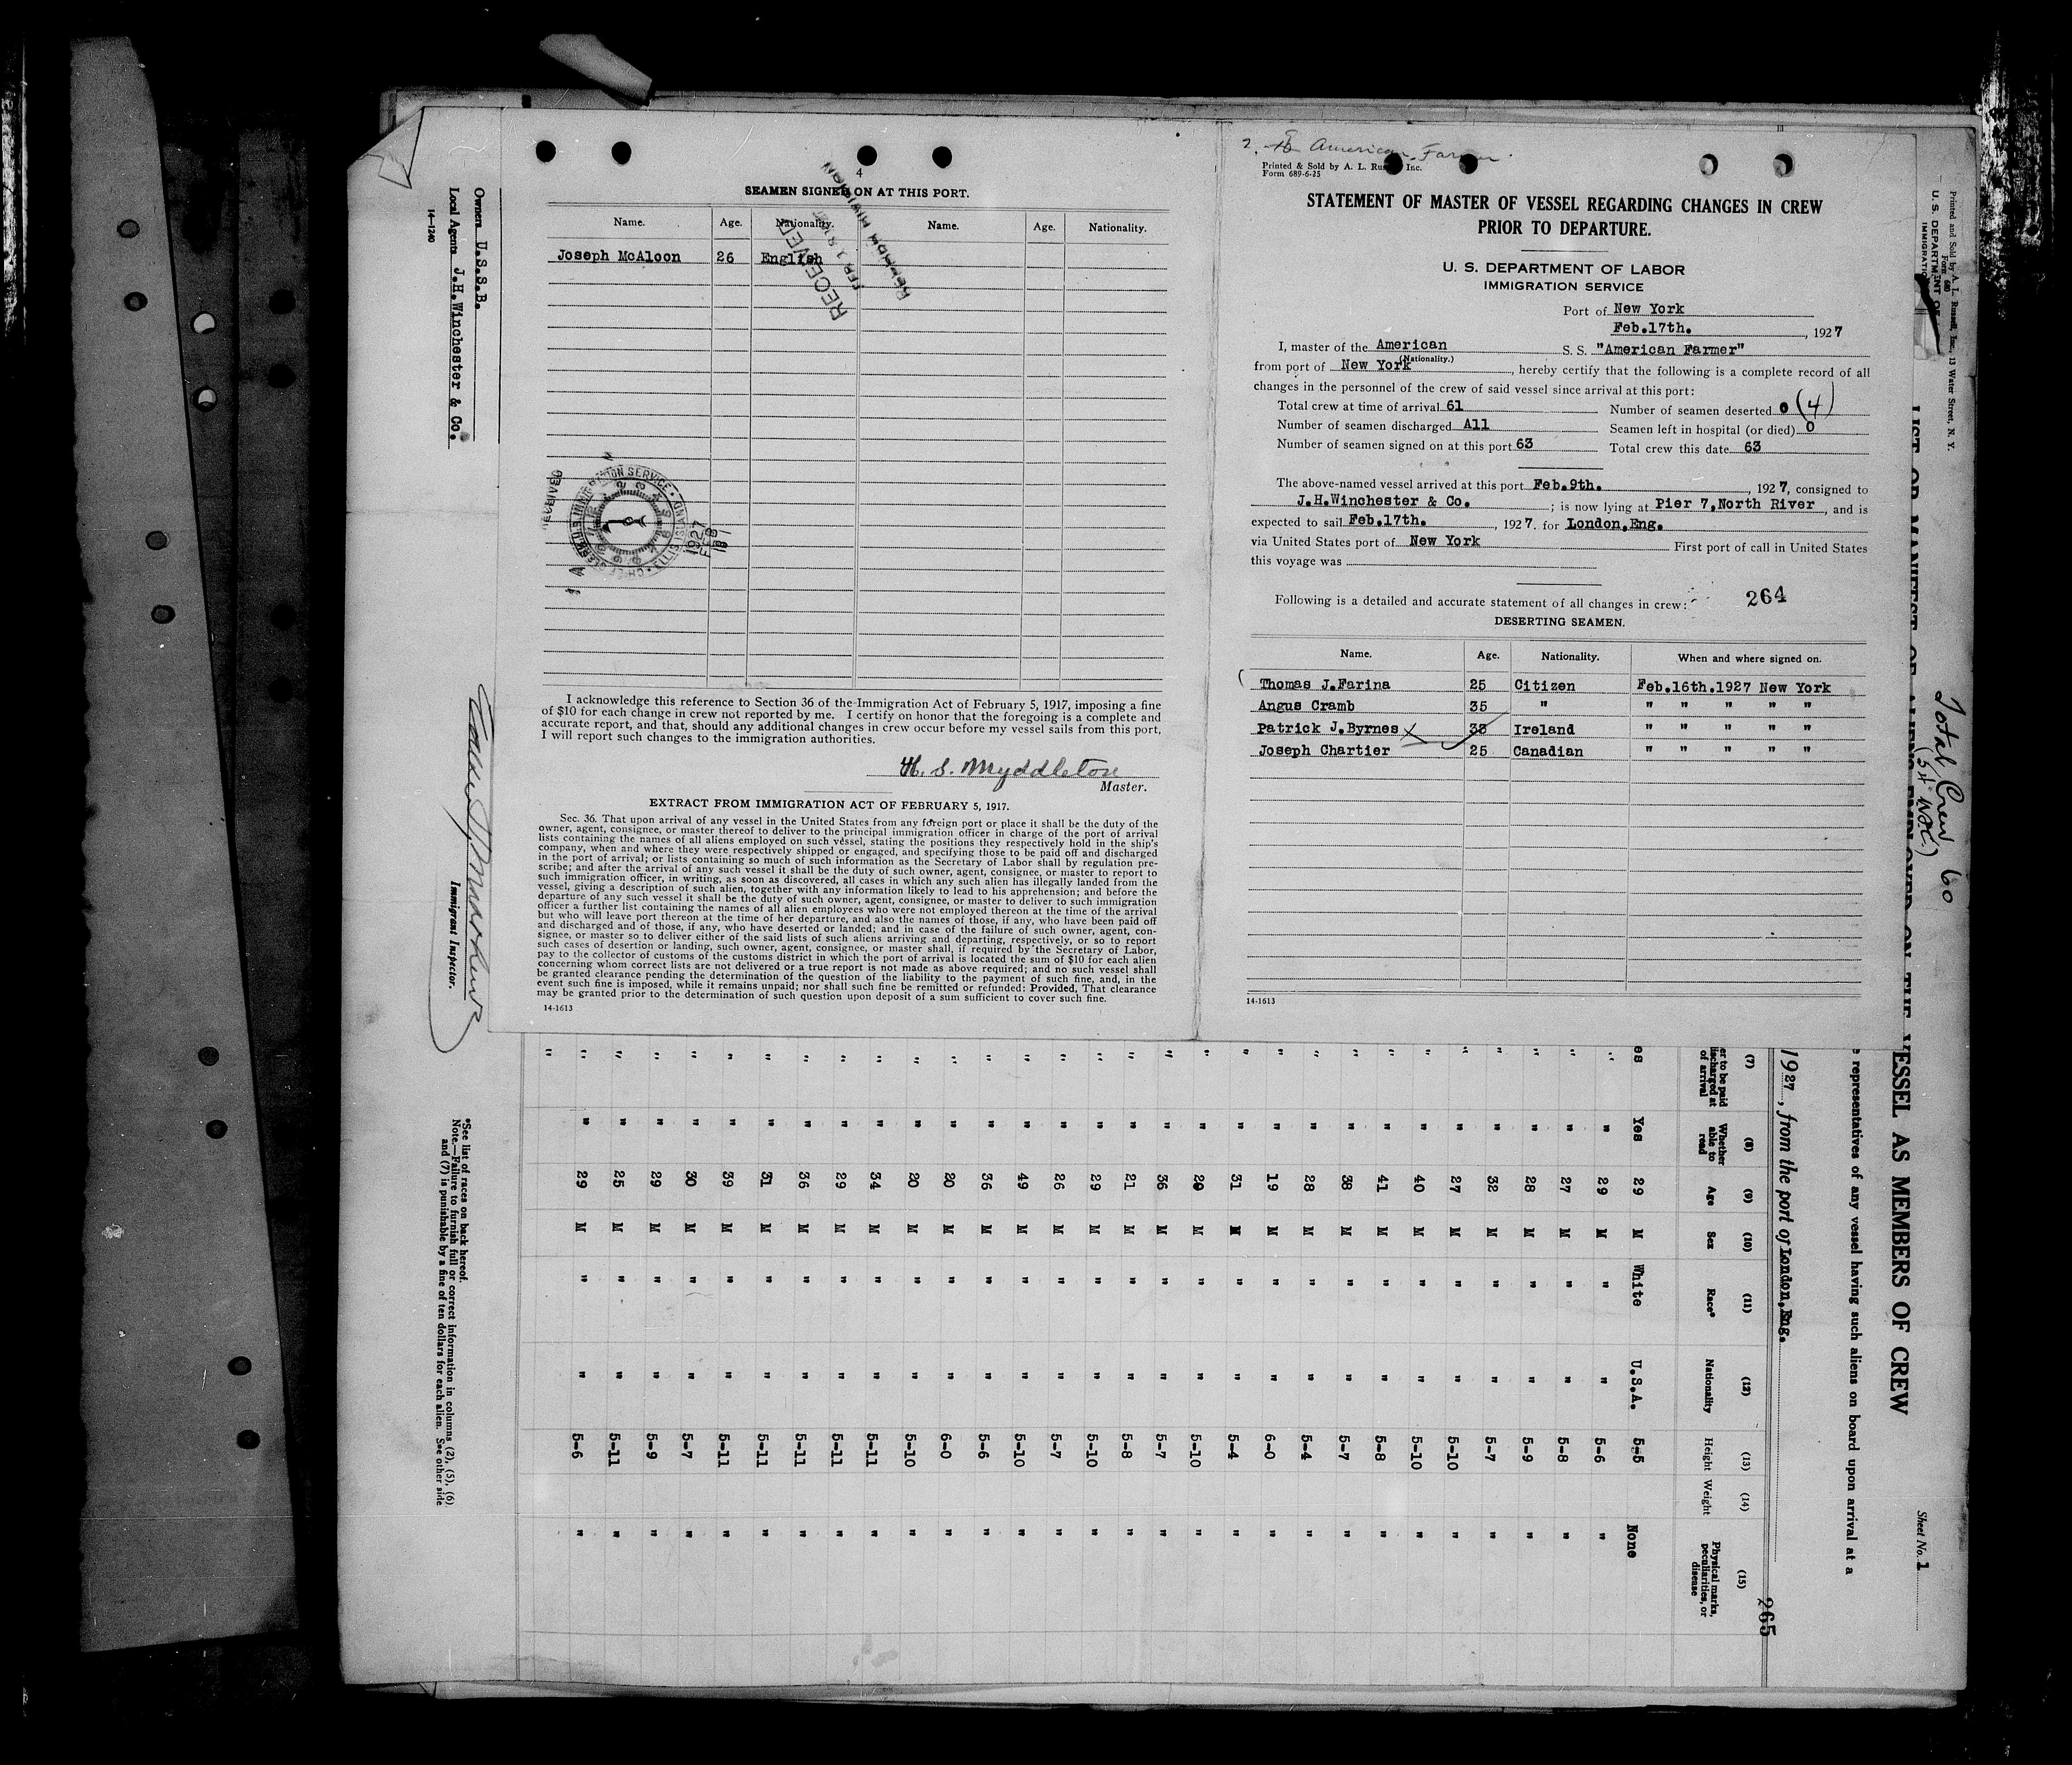 4
SEAMEN SIGNED ON AT THIS PORT.
Name. Age. Nationality. Name. Age. Nationality.
Joseph McAloon 26 English
RECEIVED
RECEIVED
U.S. IMMIGRATION SERVICE
ELLIS ISLAND
1927
FEB
I acknowledge this reference to Section 36 of the Immigration Act of February 5, 1917, imposing a fine
of $10 for each change in crew not reported by me. I certify on honor that the foregoing is a complete and
accurate report, and that, should any additional changes in crew occur before my vessel sails from this port,
I will report such changes to the immigration authorities.
H. S. Myddleton
Master.
EXTRACT FROM IMMIGRATION ACT OF FEBRUARY 5, 1917.
Sec. 36. That upon arrival of any vessel in the United States from any foreign port or place it shall be the duty of the
owner, agent, consignee, or master thereof to deliver to the principal immigration officer in charge of the port of arrival
lists containing the names of all aliens employed on such vessel, stating the positions they respectively hold in the ship's
company, when and where they were respectively shipped or engaged, and specifying those to be paid off and discharged
in the port of arrival; or lists containing so much of such information as the Secretary of Labor shall by regulation pre-
scribe; and after the arrival of any such vessel it shall be the duty of such owner, agent, consignee, or master to report to
such immigration officer, in writing, as soon as discovered, all cases in which any such alien has illegally landed from the
vessel, giving a description of such alien, together with any information likely to lead to his apprehension; and before the
departure of any such vessel it shall be the duty of such owner, agent, consignee, or master to deliver to such immigration
officer a further list containing the names of all alien employees who were not employed thereon at the time of the arrival
but who will leave port thereon at the time of her departure, and also the names of those, if any, who have been paid off
and discharged and of those, if any, who have deserted or landed; and in case of the failure of such owner, agent, con-
signee, or master so to deliver either of the said lists of such aliens arriving and departing, respectively, or so to report
such cases of desertion or landing, such owner, agent, consignee, or master shall, if required by the Secretary of Labor,
pay to the collector of customs of the customs district in which the port of arrival is located the sum of $10 for each alien
concerning whom correct lists are not delivered or a true report is not made as above required; and no such vessel shall
be granted clearance pending the determination of the question of the liability to the payment of such fine, and, in the
event such fine is imposed, while it remains unpaid; nor shall such fine be remitted or refunded: Provided, That clearance
may be granted prior to the determination of such question upon deposit of a sum sufficient to cover such fine.
14-1613
2. American Farmer.
Printed & Sold by A. L. Rus Inc.
Form 689-6-25
STATEMENT OF MASTER OF VESSEL REGARDING CHANGES IN CREW
PRIOR TO DEPARTURE.
U. S. DEPARTMENT OF LABOR
IMMIGRATION SERVICE
Port of New York
Feb.17th., 1927
I, master of the American S. S. "American Farmer"
(Nationality.)
from port of New York, hereby certify that the following is a complete record of all
changes in the personnel of the crew of said vessel since arrival at this port:
Total crew at time of arrival 61 Number of seamen deserted 0 (4)
Number of seamen discharged All Seamen left in hospital (or died) 0
Number of seamen signed on at this port 63 Total crew this date 63
The above-named vessel arrived at this port Feb.9th., 1927, consigned to
J.H.Winchester & Co.; is now lying at Pier 7,North River, and is
expected to sail Feb.17th., 1927. for London,Eng.
via United States port of New York First port of call in United States
this voyage was
Following is a detailed and accurate statement of all changes in crew: 264
DESERTING SEAMEN.
Name. Age. Nationality. When and where signed on.
Thomas J.Farina 25 Citizen Feb.16th.1927 New York
Angus Cramb 35 " " " " " "
Patrick J.Byrnes 38 Ireland " " " " "
Joseph Chartier 25 Canadian " " " " "
14-1613
Owners U.S.S.B.
Local Agents J.H.Winchester & Co.
14-1240
Immigrant Inspector.
*See list of races on back hereof.
Note.—Failure to furnish full or correct information in columns (2), (5), (6)
and (7) is punishable by a fine of ten dollars for each alien. See other side
Printed and Sold by A. L. Russell, Inc., 13 Water Street, N. Y.
Form 680
U. S. DEPARTMENT OF
IMMIGRATION
Total Crew 60
Sheet No. 1
LIST OR MANIFEST OF ALIENS EMPLOYED ON THE VESSEL AS MEMBERS OF CREW
representatives of any vessel having such aliens on board upon arrival at a
1927, from the port of London,Eng.
265
(7) (8) (9) (10) (11) (12) (13) (14) (15)
er to be paid discharged at of arrival Whether able to read Age Sex Race* Nationality Height Weight Physical marks, peculiarities, or disease
es Yes 29 M White U.S.A. 5-5 None
" " 29 M " " 5-6 "
" " 27 M " " 5-8 "
" " 28 M " " 5-9 "
" " 32 M " " 5-7 "
" " 27 M " " 5-10 "
" " 40 M " " 5-10 "
" " 41 M " " 5-8 "
" " 38 M " " 5-7 "
" " 28 M " " 5-4 "
" " 19 M " " 6-0 "
" " 31 M " " 5-4 "
" " 29 M " " 5-10 "
" " 36 M " " 5-7 "
" " 21 M " " 5-8 "
" " 29 M " " 5-10 "
" " 26 M " " 5-7 "
" " 49 M " " 5-10 "
" " 36 M " " 5-6 "
" " 20 M " " 6-0 "
" " 20 M " " 5-10 "
" " 34 M " " 5-11 "
" " 29 M " " 5-11 "
" " 36 M " " 5-11 "
" " 31 M " " 5-11 "
" " 39 M " " 5-11 "
" " 30 M " " 5-7 "
" " 29 M " " 5-9 "
" " 25 M " " 5-11 "
" " 29 M " " 5-6 "